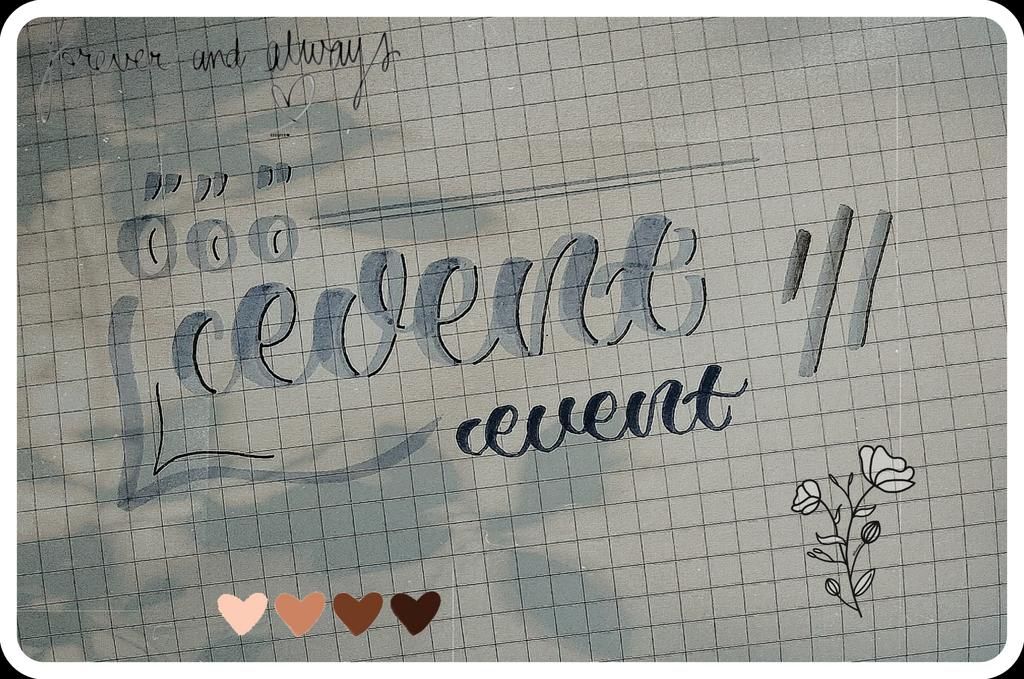 forever and always
cevent
cevent